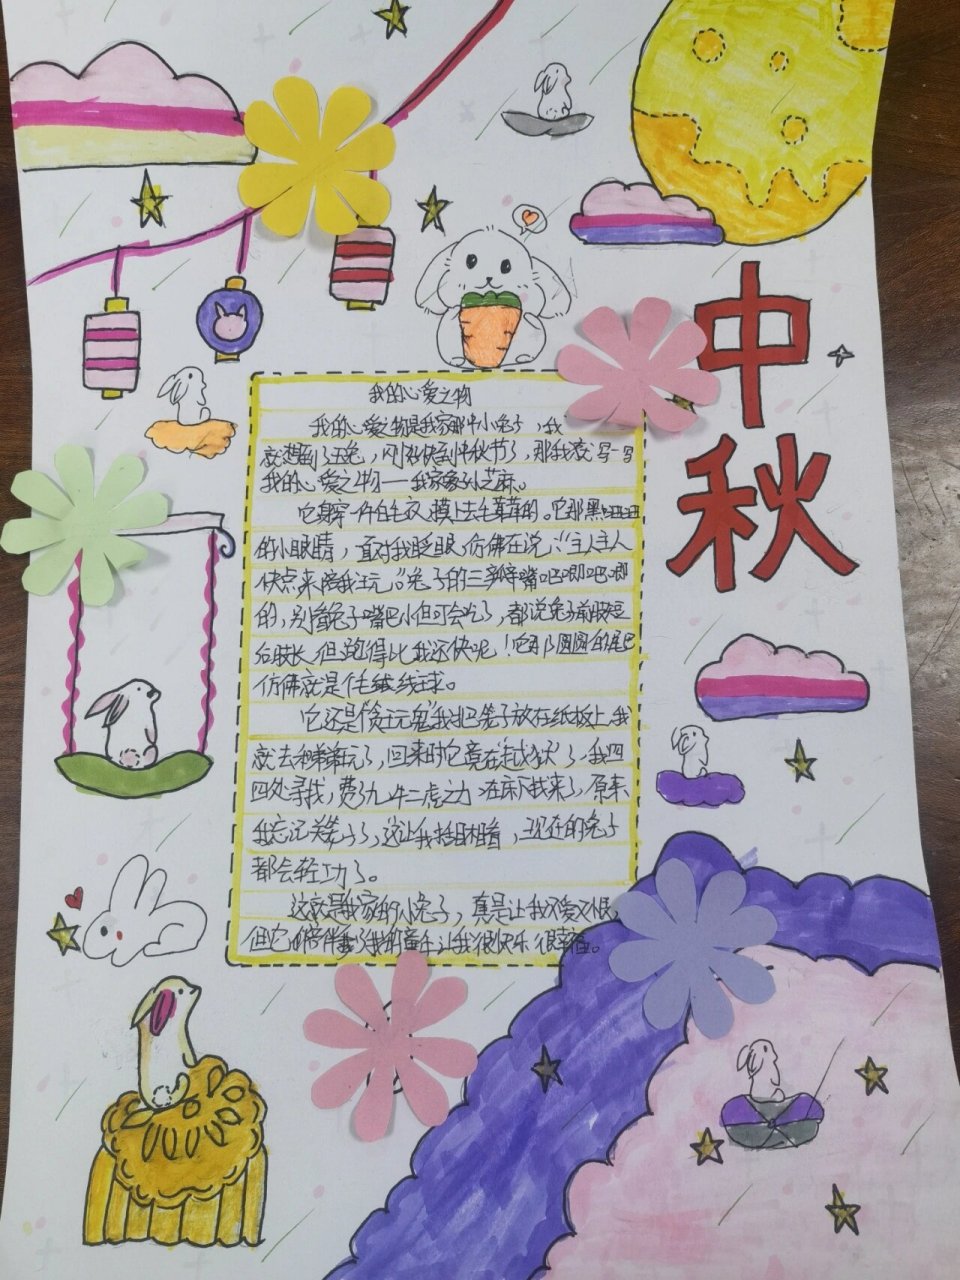 中秋
我的心爱之物
我的心爱之物是我家那只小兔子，我
就想到玉兔，刚好快到中秋节了，那我写一写
我的心爱之物——我家兔子小芝麻。
它身穿一件白毛衣，摸上去毛茸茸的，它那黑
的小眼睛，直对我眨眼仿佛在说：“主人主人
快点来陪我玩。”兔子的三瓣嘴吧唧吧唧
的，别看兔子嘴巴小但可会吃了，都说兔子前肢短
后肢长，但跑得比我还快呢！它那圆圆的尾巴
仿佛就是个毛绒线球。
它还是个“贪玩鬼”我把笼子放在纸板上，我
就去和弟弟玩了，回来时它竟在“越狱”了，我四
四处寻找，费了九牛二虎之力在床下找来了，原来
我忘记关笼子了，这让我刮目相看，现在的兔子
都会轻功了。
这就是我家的小兔子，真是让我又爱又恨，
但它的陪伴我的童年让我很快乐很幸福。